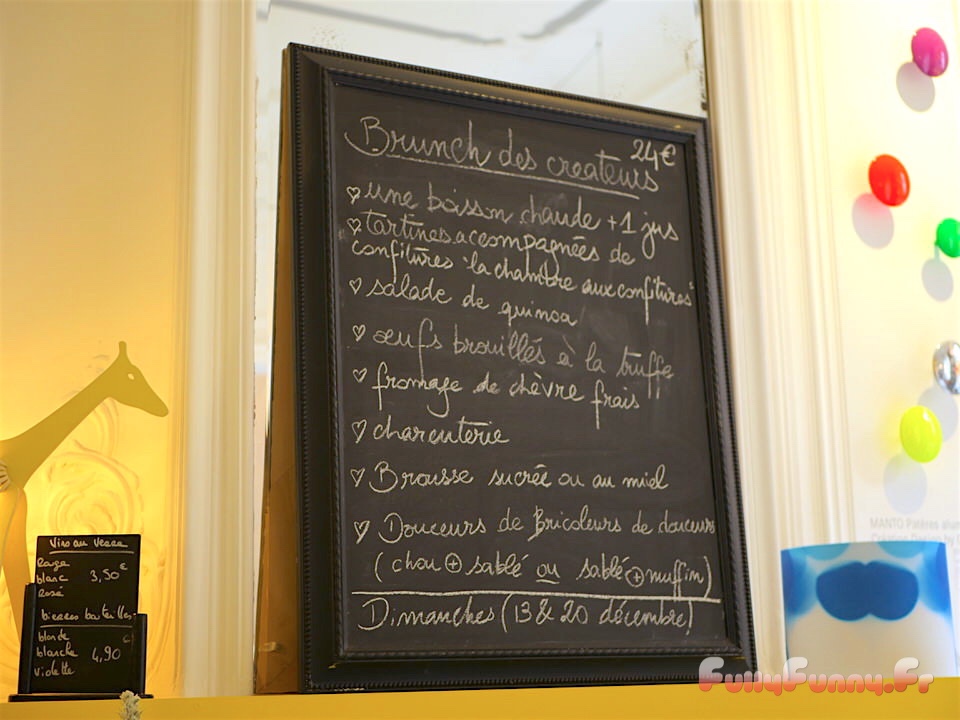 Brunch des createurs 24€
une boisson chaude + 1 jus
tartines accompagnées de
confitures "la chambre aux confitures"
salade de quinoa
œufs brouillés à la truffe
fromage de chèvre frais
charcuterie
Brousse sucrée ou au miel
Douceurs de Bricoleurs de douceurs
(chou + sablé ou sablé + muffin)
Dimanches (13 & 20 décembre)
Vins au verre
Rouge
blanc 3,50€
Rosé
bieres bouteilles
blonde €
blanche 4,90
violette
MANTO Patères
FullyFunny.Fr